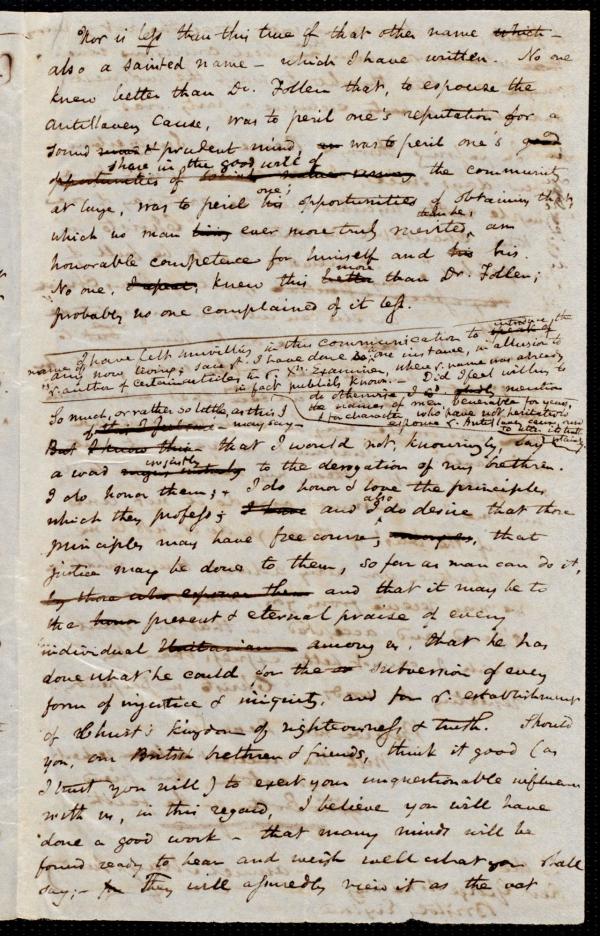 Nor is less than this true of that other name which –
also a sainted name – which I have written. No one
knew better than Dr. Follen that, to espouse the
Antislavery Cause, was to peril one's reputation for a
sound & prudent mind, was to peril one's good
share in the good will of
opportunities of the community
at large, was to peril his one's opportunities of obtaining that,
which no man living ever more truly merited, than he, an
honorable competence for himself and his his.
No one, I repeat, knew this better more than Dr. Follen;
probably no one complained of it less.
I have felt unwilling in this communication to speak of introduce the
name of any now living; save I have done so, in one instance, in allusion to
r. author of certain articles, in r. Xn. Examiner, where r. name was already
in fact publicly known. – Did I feel willing to
do otherwise, I could mention
the names of men, venerable for years,
& for character, who have not hesitated to
espouse r. Antislavery cause, and
So much, or rather so little, as this I
may say –
But I know this – that I would not, knowingly, say
a word unjustly to the derogation of my brethren.
I do honor them; & I do honor & love the principles
which they profess; I have and I also do desire that those
principles may have free course; that
justice may be done to them, so far as man can do it,
by those who espouse them and that it may be to
the honor present & eternal praise of every
individual Unitarian among us, that he has
done what he could, for the subversion of every
form of injustice & iniquity, and for r. establishment
of Christ's kingdom of righteousness & truth. Should
you, our British brethren & friends, think it good (as
I trust you will) to exert your unquestionable influence
with us, in this regard, I believe you will have
done a good work – that many minds will be
found ready to hear and weigh well what you shall
say; – They will assuredly view it as the not